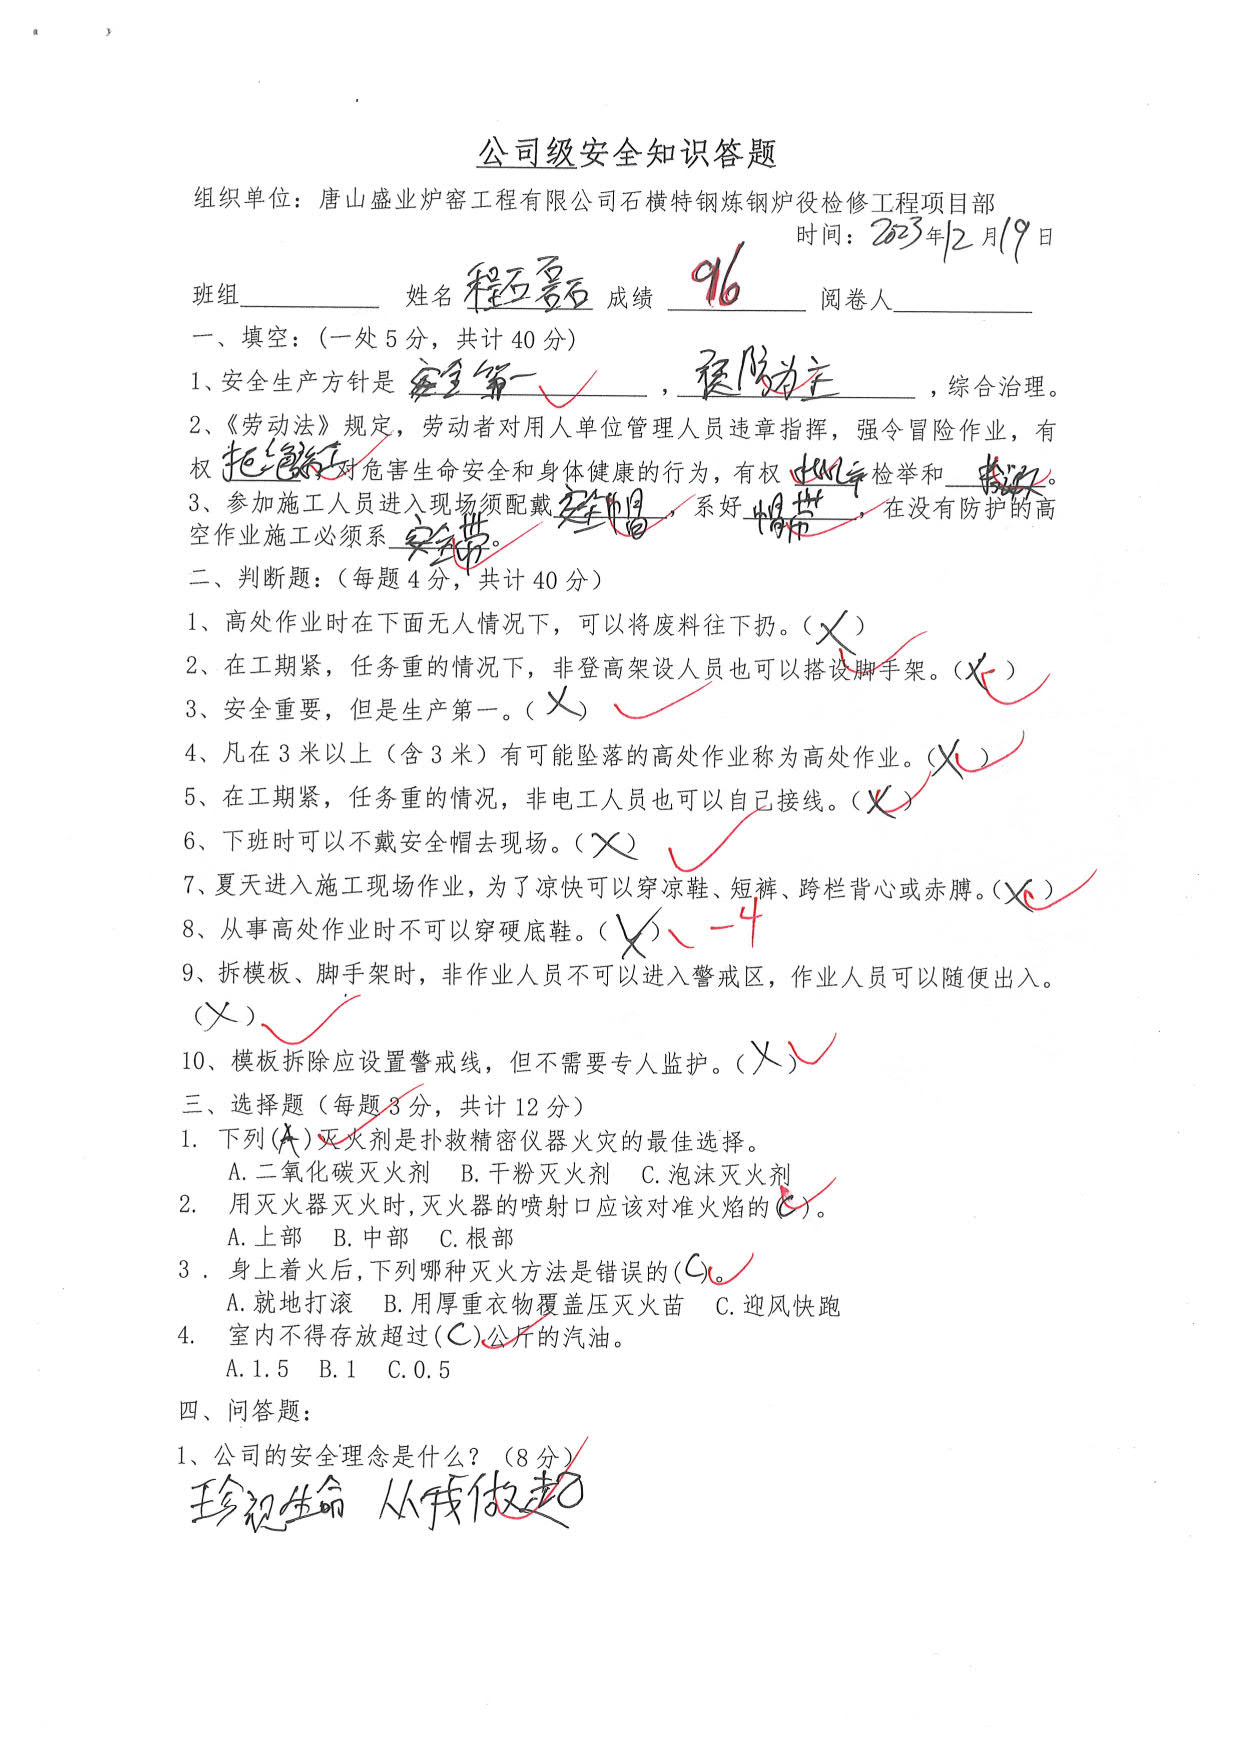 公司级安全知识答题
组织单位：唐山盛业炉窑工程有限公司石横特钢炼钢炉役检修工程项目部
时间：2023年12月19日
班组 姓名 程磊 成绩 96 阅卷人
一、填空：(一处5分，共计40分)
1、安全生产方针是 安全第一 ，预防为主 ，综合治理。
2、《劳动法》规定，劳动者对用人单位管理人员违章指挥，强令冒险作业，有
权 拒绝 对危害生命安全和身体健康的行为，有权 批评 检举和 。
3、参加施工人员进入现场须配戴 安全帽 ，系好 帽带 ，在没有防护的高
空作业施工必须系 安全带 。
二、判断题：（每题4分，共计40分）
1、高处作业时在下面无人情况下，可以将废料往下扔。（X）
2、在工期紧，任务重的情况下，非登高架设人员也可以搭设脚手架。（X）
3、安全重要，但是生产第一。（X）
4、凡在3米以上（含3米）有可能坠落的高处作业称为高处作业。（X）
5、在工期紧，任务重的情况，非电工人员也可以自己接线。（X）
6、下班时可以不戴安全帽去现场。（X）
7、夏天进入施工现场作业，为了凉快可以穿凉鞋、短裤、跨栏背心或赤膊。（X）
8、从事高处作业时不可以穿硬底鞋。（X） -4
9、拆模板、脚手架时，非作业人员不可以进入警戒区，作业人员可以随便出入。
（X）
10、模板拆除应设置警戒线，但不需要专人监护。（X）
三、选择题（每题3分，共计12分）
1. 下列(A)灭火剂是扑救精密仪器火灾的最佳选择。
A.二氧化碳灭火剂 B.干粉灭火剂 C.泡沫灭火剂
2. 用灭火器灭火时,灭火器的喷射口应该对准火焰的(C)。
A.上部 B.中部 C.根部
3 . 身上着火后,下列哪种灭火方法是错误的(C)。
A.就地打滚 B.用厚重衣物覆盖压灭火苗 C.迎风快跑
4. 室内不得存放超过(C)公斤的汽油。
A.1.5 B.1 C.0.5
四、问答题：
1、公司的安全理念是什么？（8分）
珍视生命 从我做起